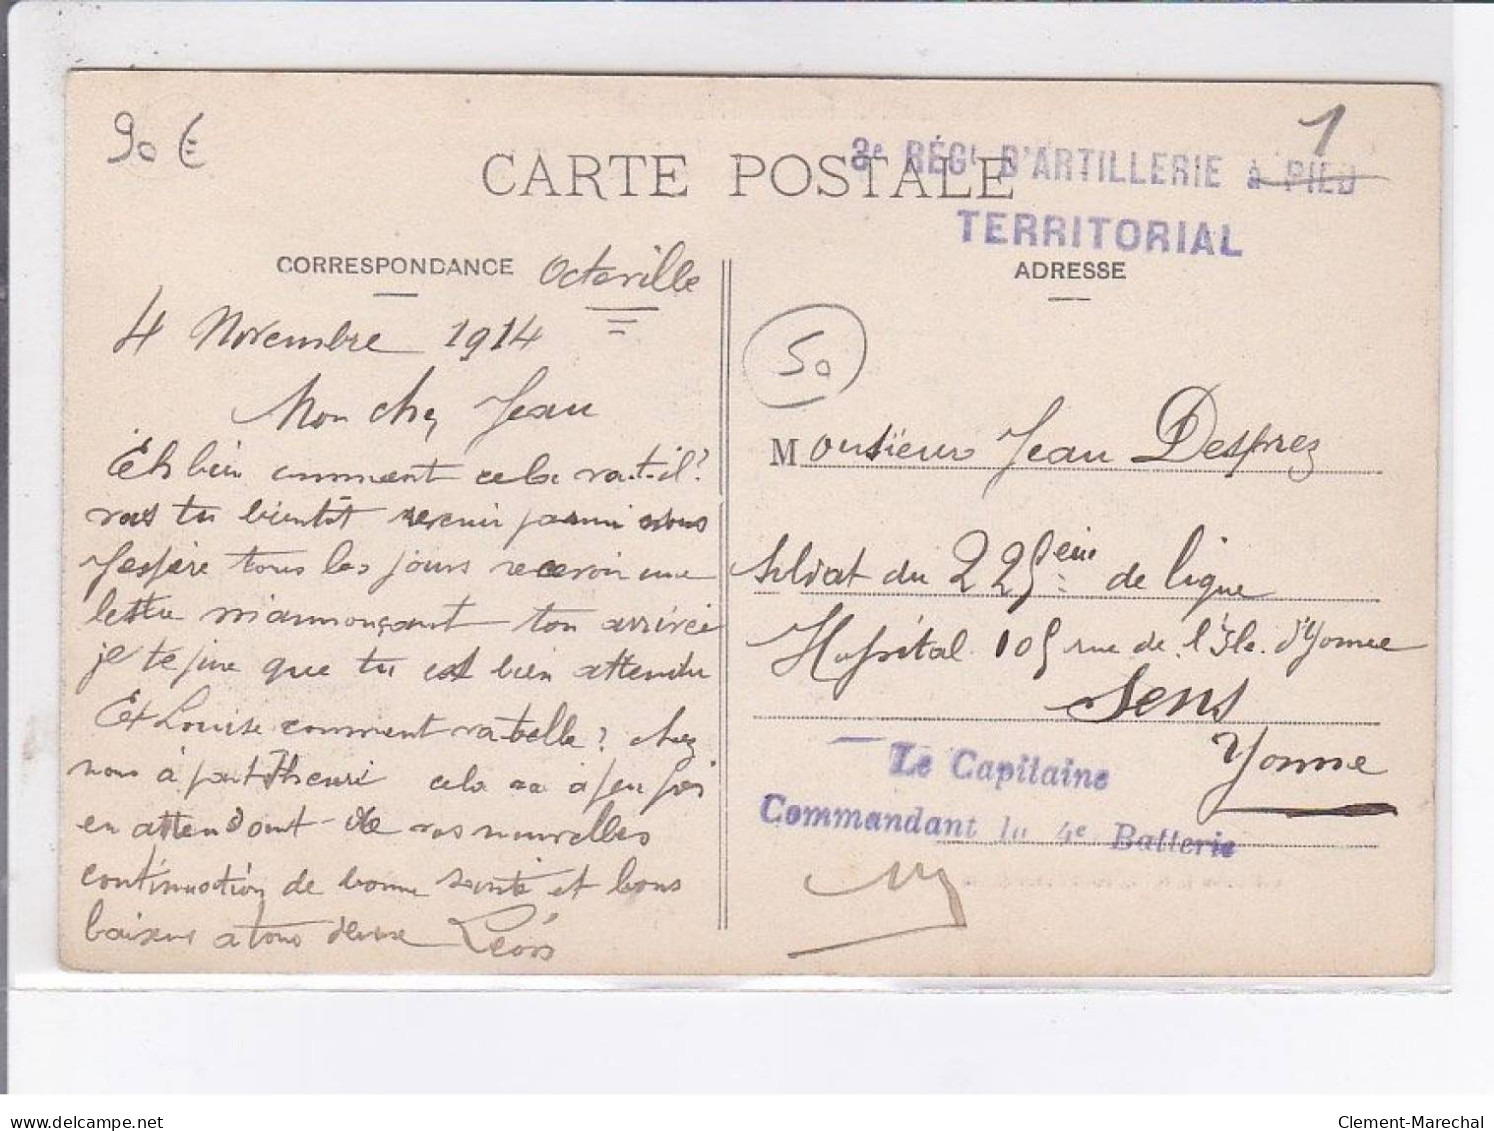 90 €
1
CARTE POSTALE
3e RÉGt D'ARTILLERIE à PIED
TERRITORIAL
CORRESPONDANCE
Octeville
ADRESSE
4 Novembre 1914
Mon cher Jean
Eh bien comment cela va-t-il?
vas tu bientôt revenir parmi nous
J'espère tous les jours recevoir une
lettre m'annonçant ton arrivée
je te jure que tu est bien attendu
Et Louise comment va-t-elle? chez
nous à part Henri cela va à peu près
en attendant de vos nouvelles
continuation de bonne santé et bons
baisers a tous deux Léon
50
Monsieur Jean Desprez
Soldat du 225ème de ligne
Hôpital 105 rue de l'Ile d'Yonne
Sens
Yonne
Le Capitaine
Commandant la 4e Batterie
delcampe.net
Clement-Marechal